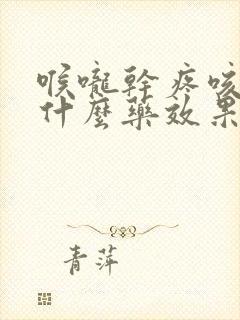 喉嚨幹疼咳
什麼藥效果
青萍